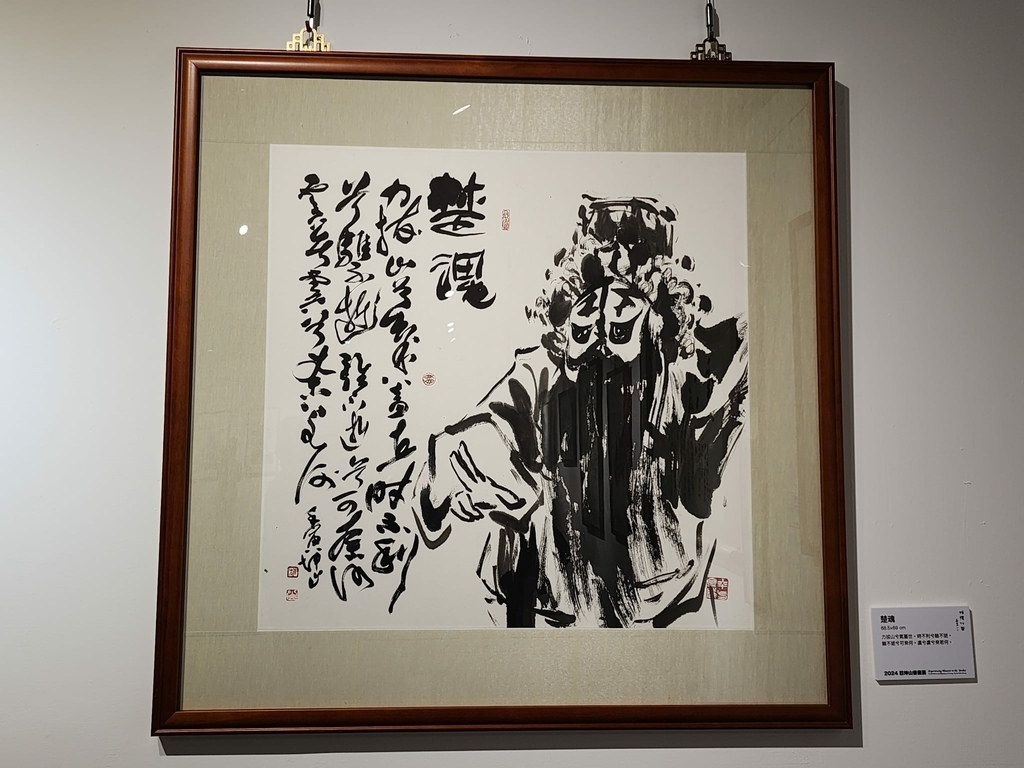 楚魂
力拔山兮氣蓋世時不利
兮騅不逝騅不逝兮可奈何
虞兮虞兮奈若何
楚魂
力拔山兮氣蓋世。時不利兮騅不逝。
騅不逝兮可奈何。虞兮虞兮奈若何。